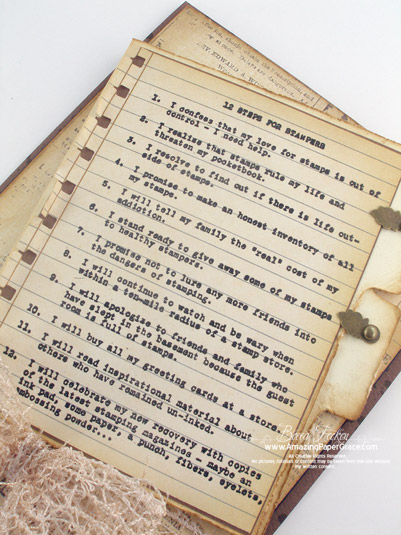 12 STEPS FOR STAMPERS
1. I confess that my love for stamps is out of
control - I need help.
2. I realize that stamps rule my life and
threaten my pocketbook.
3. I resolve to find out if there is life out-
side of stamps.
4. I promise to make an honest inventory of all
my stamps.
5. I will tell my family the "real" cost of my
addiction.
6. I stand ready to give away some of my stamps
to healthy stampers.
7. I promise not to lure any more friends into
the dangers of stamping.
8. I will continue to watch and be wary when
within a ten-mile radius of a stamp store.
9. I will apologize to friends and family who
have slept in the basement because the guest
room is full of stamps.
10. I will buy all my greeting cards at a store.
11. I will read inspirational material about
others who have remained un-inked.
12. I will celebrate my new recovery with copies
of the latest stamping magazines - maybe an
ink pad, some paper, a punch, fibers, eyelets,
embossing powder...
www.AmazingPaperGrace.com
All Creative Rights Reserved.
my written consent.